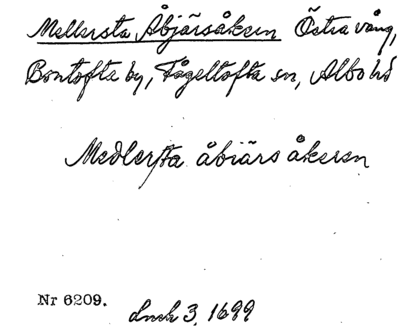 Mellersta Åbjärsåkern Östra vång,
Bontofta by, Fågeltofta sn, Albo hd
Medlersta åbiärs åkeren
Nr 6209.
3, 1699